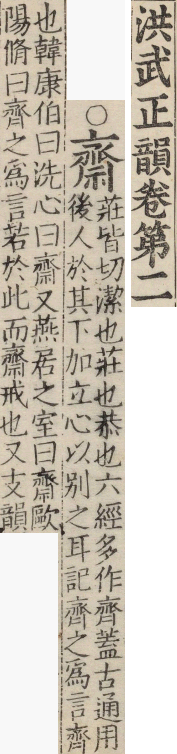 洪武正韻卷第二
○齋莊皆切潔也莊也恭也六經多作齊蓋古通用
後人於其下加立心以别之耳記齊之爲言齊
也韓康伯曰洗心曰齋又燕居之室曰齋歐
陽脩曰齊之爲言若於此而齋戒也又支韻